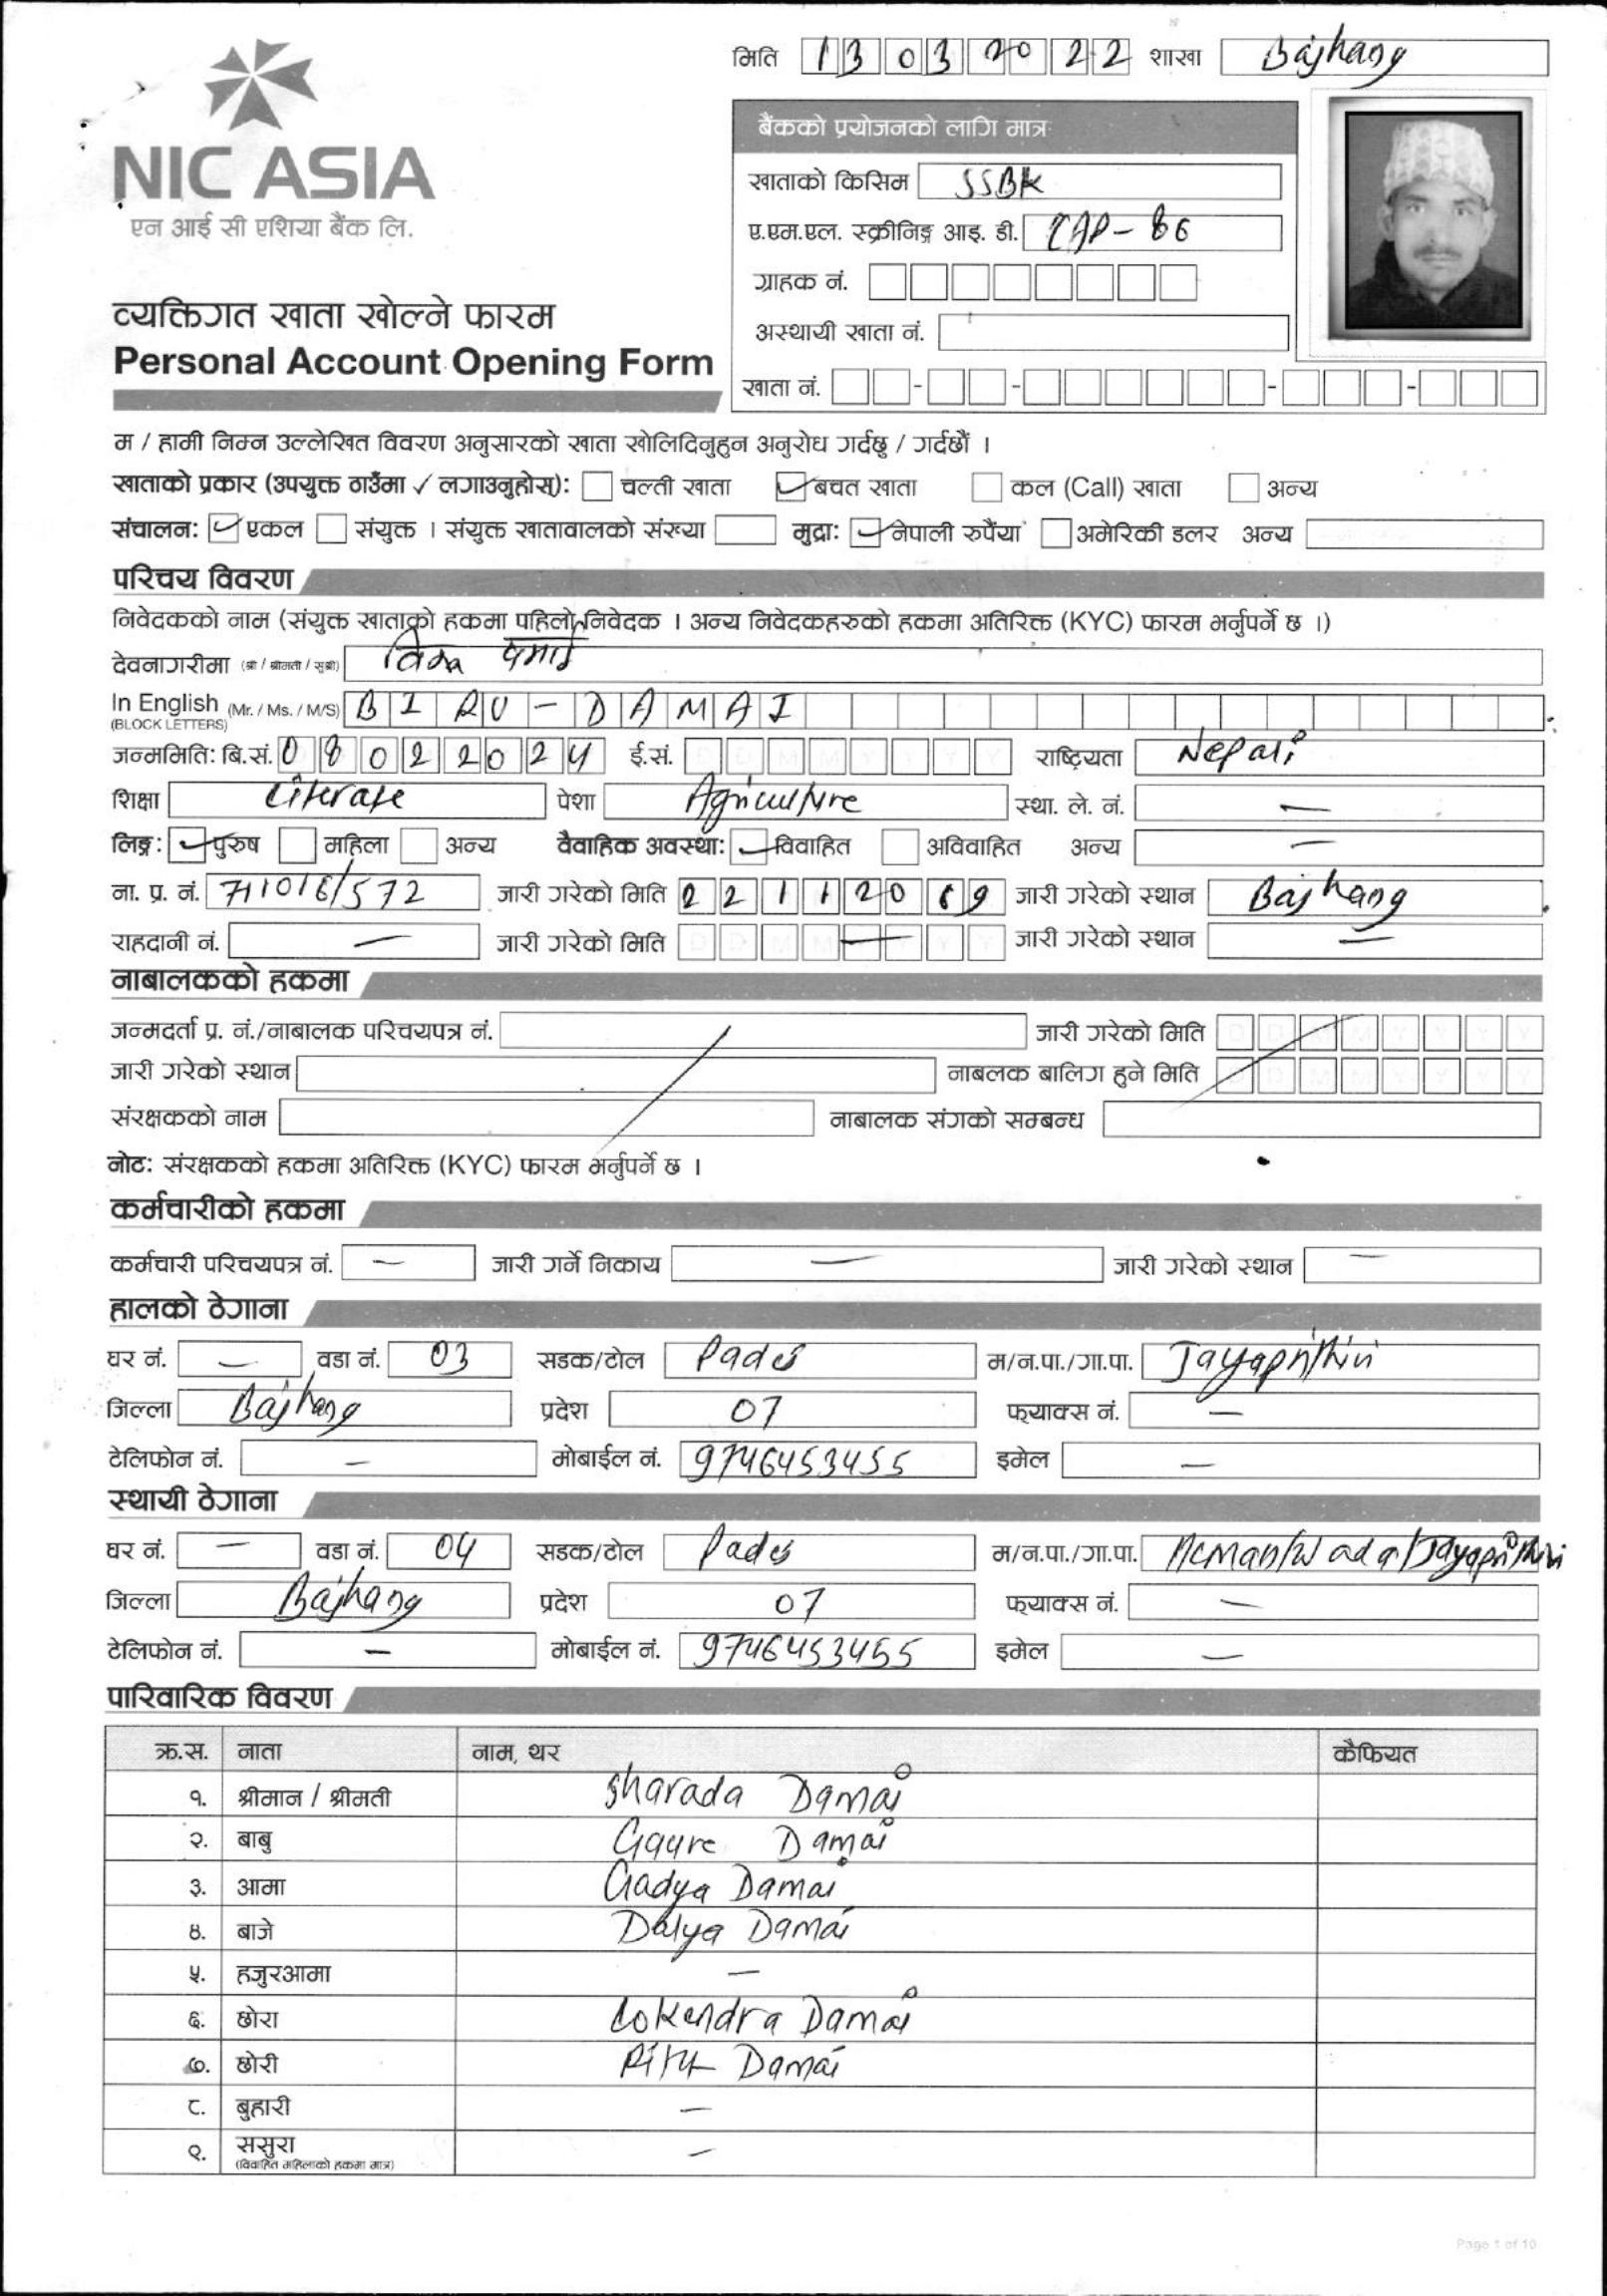 मिति 13 03 20 22 शाखा Bajhang
NIC ASIA
एन आई सी एशिया बैंक लि.
बैंकको प्रयोजनको लागि मात्र
खाताको किसिम SSBK
ए.एम.एल. स्क्रीनिङ्ग आइ. डी.
ग्राहक नं.
अस्थायी खाता नं.
खाता नं. - - - -
व्यक्तिगत खाता खोल्ने फारम
Personal Account Opening Form
म / हामी निम्न उल्लेखित विवरण अनुसारको खाता खोलिदिनुहुन अनुरोध गर्दछु / गर्दछौं ।
खाताको प्रकार (उपयुक्त ठाउँमा ✓ लगाउनुहोस्): चल्ती खाता ✓ बचत खाता कल (Call) खाता अन्य
संचालन: ✓ एकल संयुक्त । संयुक्त खातावालको संख्या मुद्रा: ✓ नेपाली रुपैंया अमेरिकी डलर अन्य
परिचय विवरण
निवेदकको नाम (संयुक्त खाताको हकमा पहिलो निवेदक । अन्य निवेदकहरुको हकमा अतिरिक्त (KYC) फारम भर्नुपर्ने छ ।)
देवनागरीमा (श्री / श्रीमती / सुश्री)
In English (Mr. / Ms. / M/S) BIRU-DAMAI
(BLOCK LETTERS)
जन्ममिति: बि.सं. 08022024 ई.सं. राष्ट्रियता Nepali
शिक्षा Literate पेशा Agriculture स्था. ले. नं. —
लिङ्ग: ✓ पुरुष महिला अन्य वैवाहिक अवस्था: ✓ विवाहित अविवाहित अन्य —
ना. प्र. नं. 711016/572 जारी गरेको मिति 22112069 जारी गरेको स्थान Bajhang
राहदानी नं. — जारी गरेको मिति — जारी गरेको स्थान —
नाबालकको हकमा
जन्मदर्ता प्र. नं./नाबालक परिचयपत्र नं. जारी गरेको मिति
जारी गरेको स्थान नाबलक बालिग हुने मिति
संरक्षकको नाम नाबालक संगको सम्बन्ध
नोट: संरक्षकको हकमा अतिरिक्त (KYC) फारम भर्नुपर्ने छ ।
कर्मचारीको हकमा
कर्मचारी परिचयपत्र नं. — जारी गर्ने निकाय — जारी गरेको स्थान —
हालको ठेगाना
घर नं. — वडा नं. 03 सडक/टोल म/न.पा./गा.पा. Jayaprithivi
जिल्ला Bajhang प्रदेश 07 फ्याक्स नं. —
टेलिफोन नं. — मोबाईल नं. 9746453455 इमेल —
स्थायी ठेगाना
घर नं. — वडा नं. 04 सडक/टोल म/न.पा./गा.पा.
जिल्ला Bajhang प्रदेश 07 फ्याक्स नं. —
टेलिफोन नं. — मोबाईल नं. 9746453455 इमेल —
पारिवारिक विवरण
क्र.स. नाता नाम, थर कैफियत
१. श्रीमान / श्रीमती Sharada Damai
२. बाबु Gaure Damai
३. आमा Gadya Damai
४. बाजे Dalya Damai
५. हजुरआमा —
६. छोरा Lokendra Damai
७. छोरी Ritu Damai
८. बुहारी —
९. ससुरा —
(विवाहित महिलाको हकमा मात्र)
Page 1 of 10